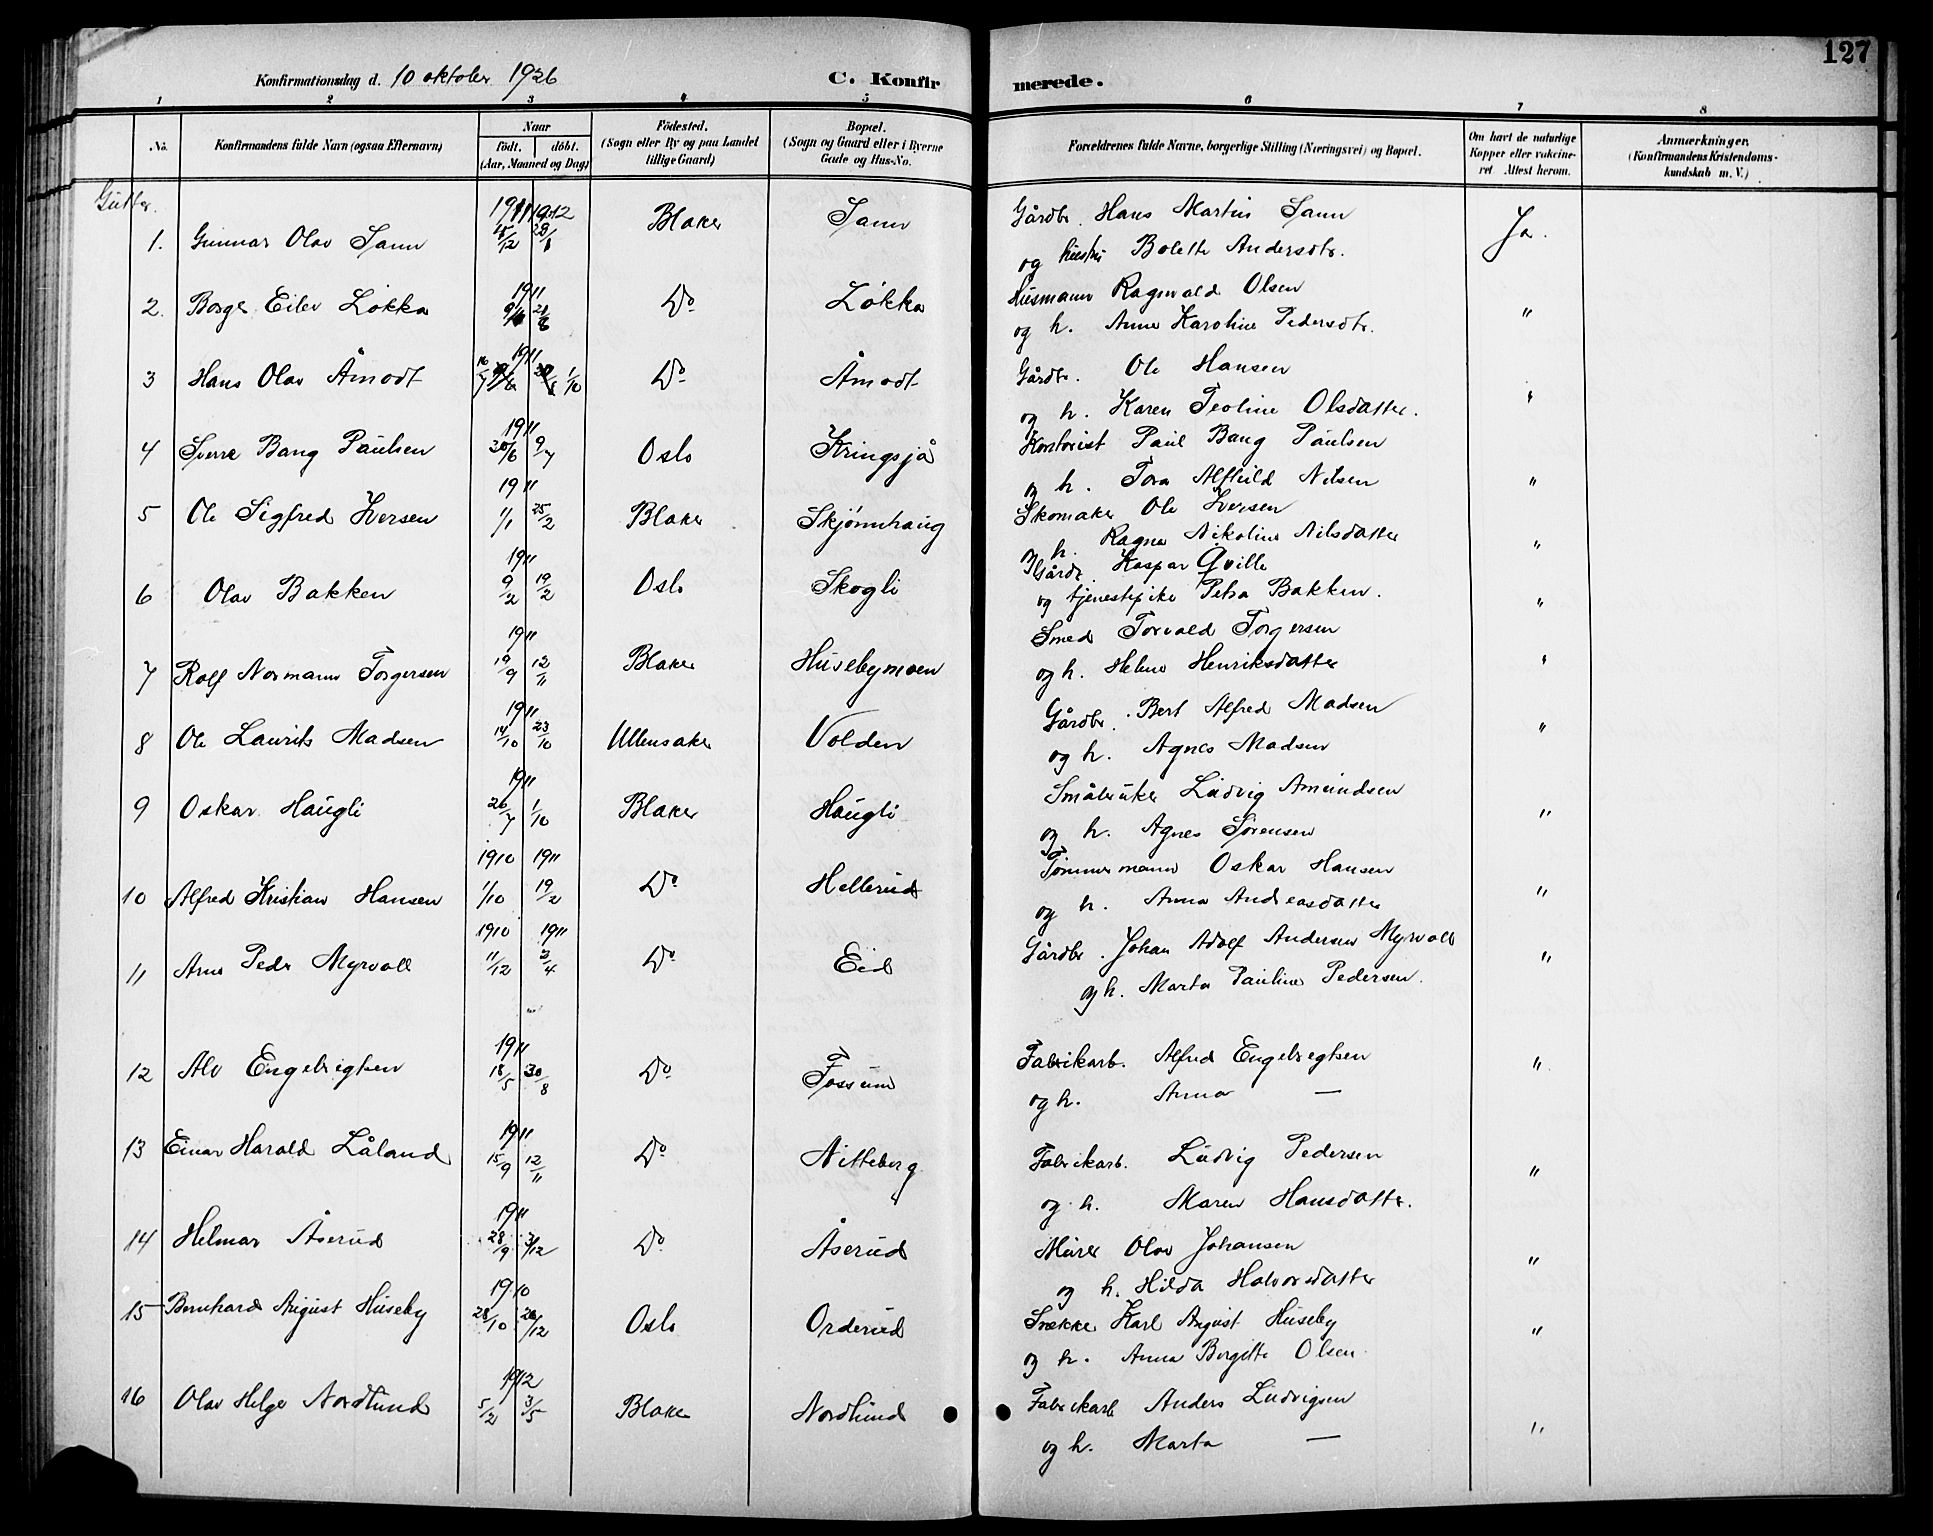 127
Konfirmationsdag d. 10 oktober 1926 C. Konfirmerede.
1 2 3 4 5 6 7 8
No. Konfirmandens fulde Navn (ogsaa Efternavn) Naar født. døbt. (Aar, Maaned og Dag) Fødested. (Sogn eller By og paa Landet tillige Gaard) Bopæl. (Sogn og Gaard eller i Byerne Gade og Hus-No. Forældrenes fulde Navne, borgerlige Stilling (Næringsvei) og Bopæl. Om havt de naturlige Kopper eller vakcineret Attest herom. Anmærkninger. (Konfirmandens Kristendomskundskab m. V.)
Gutter.
1. Gunnar Olav Sann 1911 15/12 1912 28/1 Blaker Sann Gårdbr. Hans Martin Sann Ja.
og hustru Bolette Andersdtr.
2. Borge Eilev Løkka 1911 Do Løkka Husmann Ragnvald Olsen "
og h. Anna Karoline Pedersdtr.
3 Hans Olav Åmodt 1911 16/7 1/10 Do Åmodt Gårdbr. Ole Hansen "
og h. Karen Teoline Olsdatter.
4 Sverre Bang Paulsen 1911 30/6 9/7 Oslo Kringsjå Kontorist Paul Bang Paulsen
og h. Tora Alfhild Nilsen "
5 Ole Sigfred Iversen 1911 1/1 25/2 Blaker Skjønnhaug Skomaker Ole Iversen
og h. Ragna Nikoline Nilsdatter "
6 Olav Bakken 1911 9/2 19/2 Oslo Skogli Gårdbr. Kaspar Qville
og tjenestepike Petra Bakken. "
7 Rolf Normann Torgersen 1911 19/9 12/11 Blaker Husebymoen Smed Torvald Torgersen
og h. Helene Henriksdatter "
8 Ole Laurits Madsen 1911 14/10 23/10 Ullensaker Volden Gårdbr. Bert Alfred Madsen "
og h. Agnes Madsen
9 Oskar Haugli 1911 26/7 1/10 Blaker Haugli Småbruker Ludvig Amundsen "
og h. Agnes Sørensen
10 Alfred Kristian Hansen 1910 1/10 1911 19/2 Do Hellerud Tømmermann Oskar Hansen "
og h. Anna Andreasdatter
11 Arne Peder Myrvoll 1910 11/12 1911 2/4 Do Eid Gårdbr. Johan Adolf Andersen Myrvoll "
og h. Marta Pauline Pedersen.
12 Alv Engebrigtsen 1911 18/5 30/8 Do Fossum Fabrikarb. Alfred Engebrigtsen "
og h. Anna —
13 Einar Harald Låland 1911 15/9 12/11 Do Nitteberg Fabrikarb. Ludvig Pedersen "
og h. Maren Hansdatter.
14 Helmar Åserud 1911 28/9 3/12 Do Åserud Murer Olav Johansen "
og h. Hilda Halvorsdatter
15 Bernhard August Huseby 1910 28/10 26/12 Oslo Orderud Snekker Karl August Huseby "
og h. Anna Birgitte Olsen
16 Olav Helge Nordlund 1912 5/2 3/5 Blaker Nordlund Fabrikarb Anders Ludvigsen
og h. Marta — "